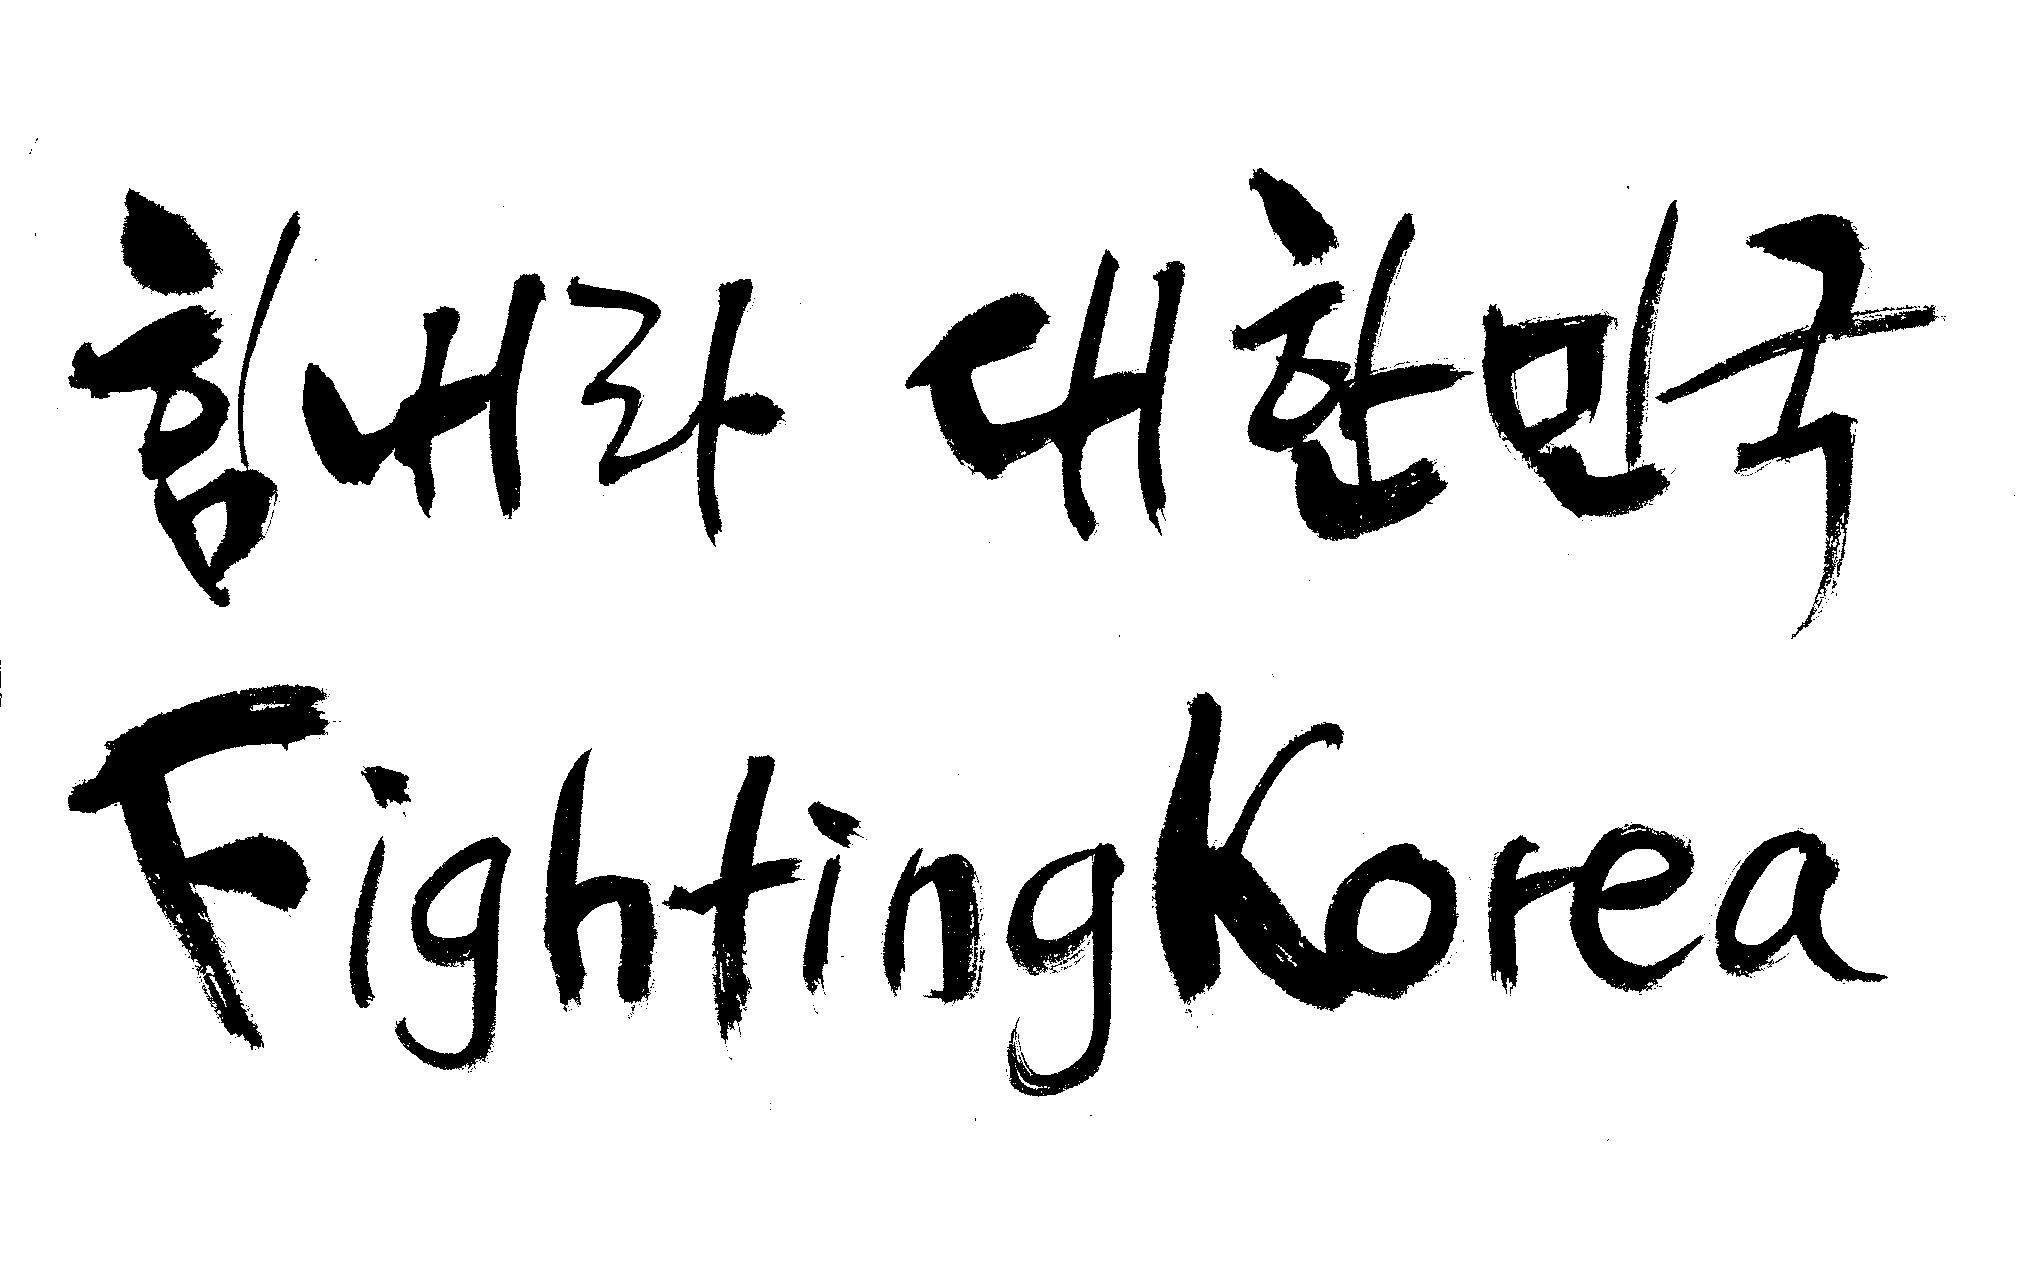 힘내라 대한민국
FightingKorea